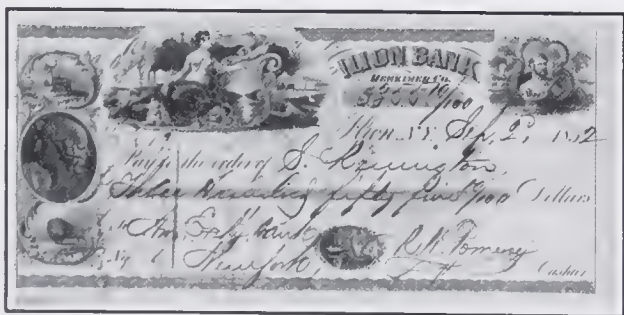 ILION BANK
HERKIMER CO.
Ilion N.Y. Sep. 2, 1852
Pay to the order of S. Remington,
Three Hundred fifty five 10/100 Dollars
To Am Exch. bank
New York, R. H. Pomeroy
Cashier